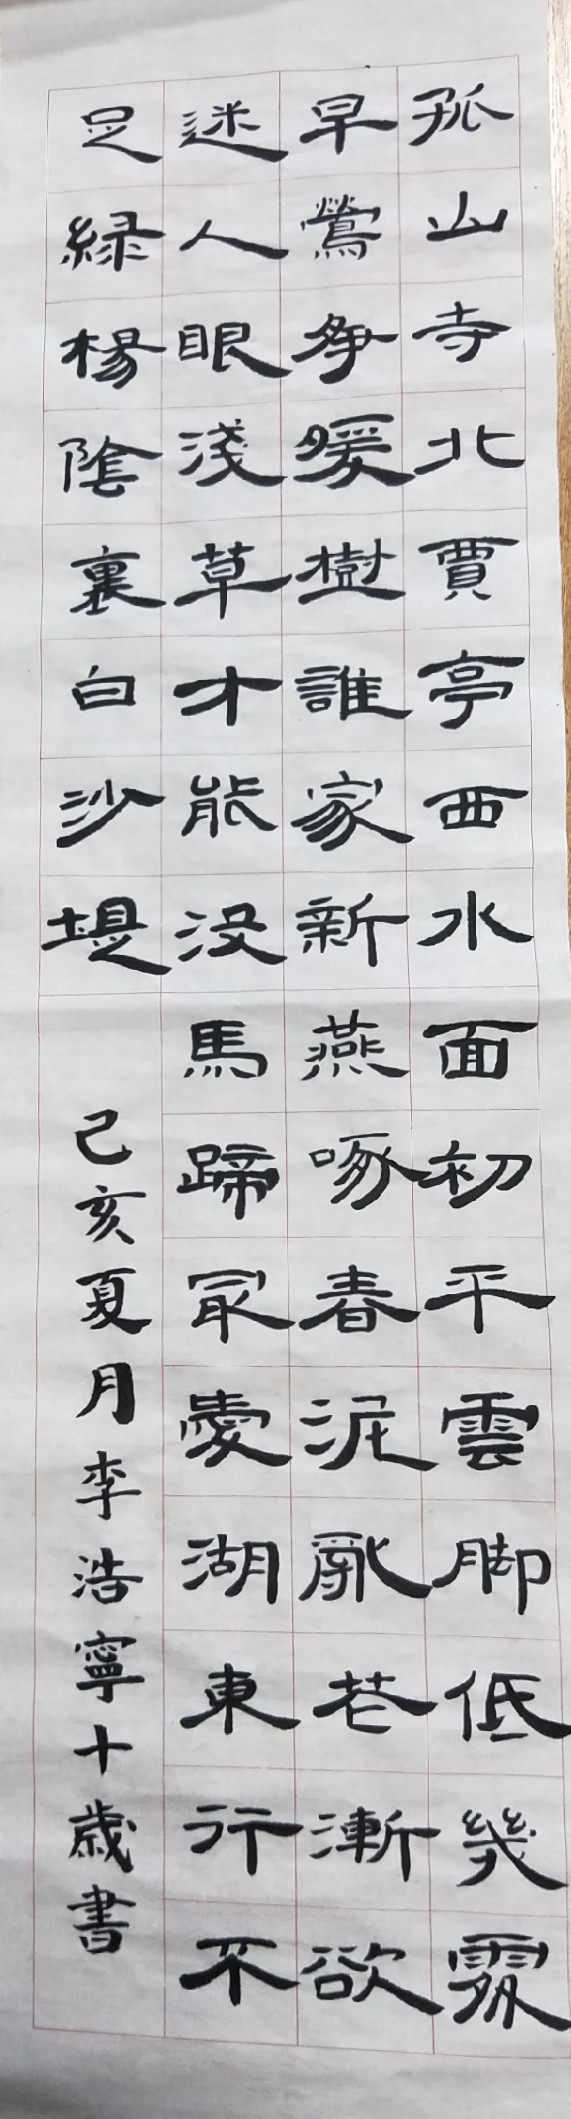 孤山寺北賈亭西水面初平雲脚低幾處
早鶯爭暖樹誰家新燕啄春泥亂花漸欲
迷人眼淺草才能没馬蹄最愛湖東行不
足綠楊陰裏白沙堤
己亥夏月李浩寧十歲書